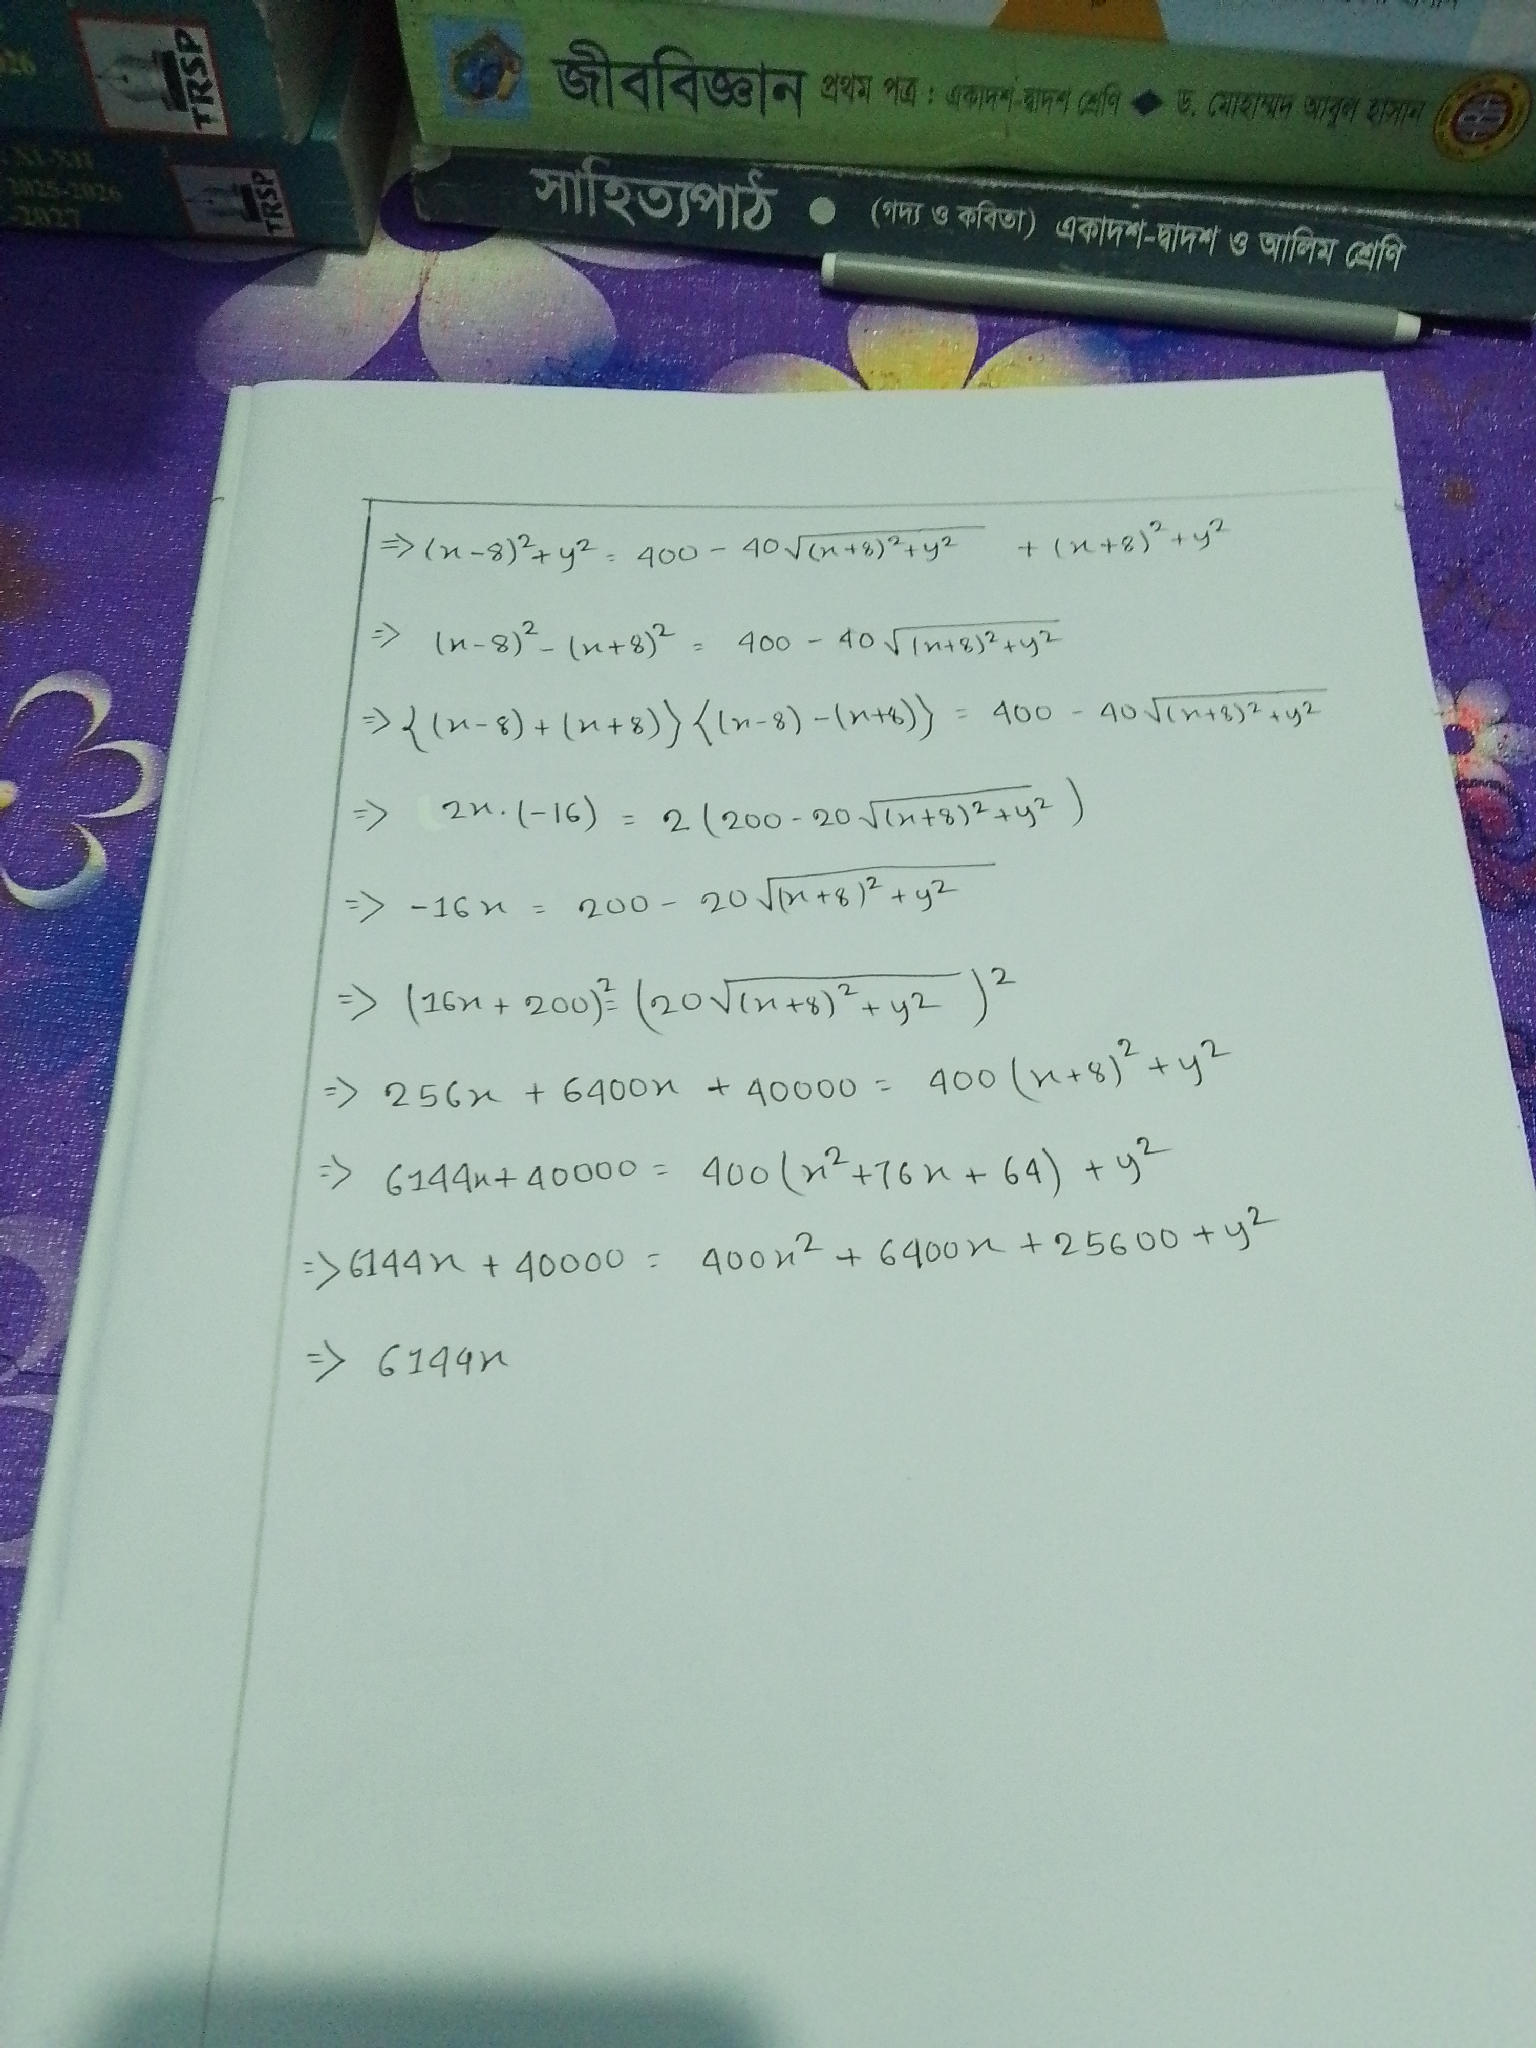 TRSP
XI-XII
2025-2026
-2027
TRSP
জীববিজ্ঞান প্রথম পত্র : একাদশ-দ্বাদশ শ্রেণি ◆ ড. মোহাম্মদ আবুল হাসান
সাহিত্যপাঠ ● (গদ্য ও কবিতা) একাদশ-দ্বাদশ ও আলিম শ্রেণি
=> (x-8)²+y² = 400 - 40√(x+8)²+y² + (x+8)²+y²
=> (x-8)² - (x+8)² = 400 - 40√(x+8)²+y²
=> {(x-8)+(x+8)} {(x-8)-(x+8)} = 400 - 40√(x+8)²+y²
=> 2x.(-16) = 2(200-20√(x+8)²+y²)
=> -16x = 200 - 20√(x+8)²+y²
=> (16x+200)² = (20√(x+8)²+y²)²
=> 256x + 6400x + 40000 = 400(x+8)²+y²
=> 6144x+40000 = 400(x²+76x+64)+y²
=> 6144x + 40000 = 400x² + 6400x + 25600 + y²
=> 6144x